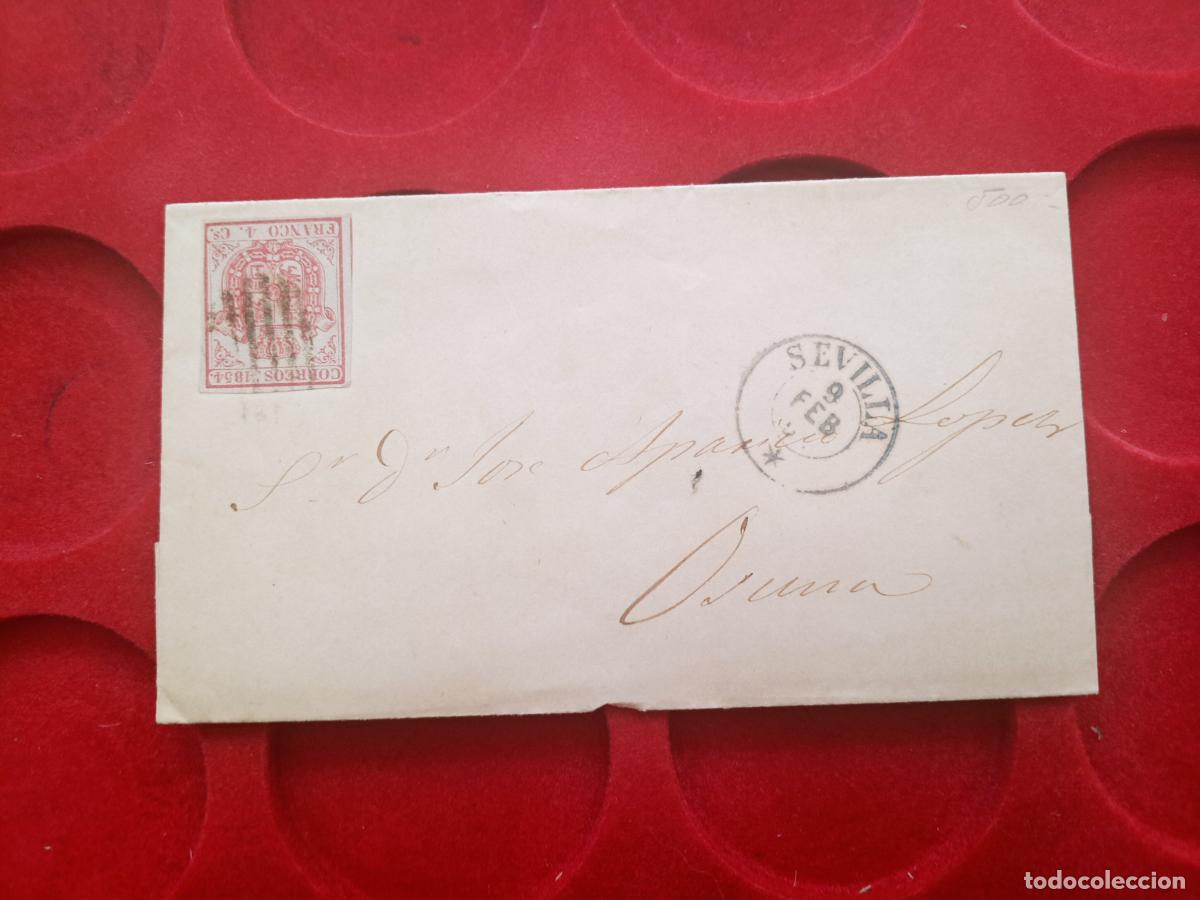 FRANCO 4. Cs.
CORREOS 1854.
500-
SEVILLA
9
FEB
Sr. Dn. Jose Aparicio Lopez
Osuna
todocoleccion